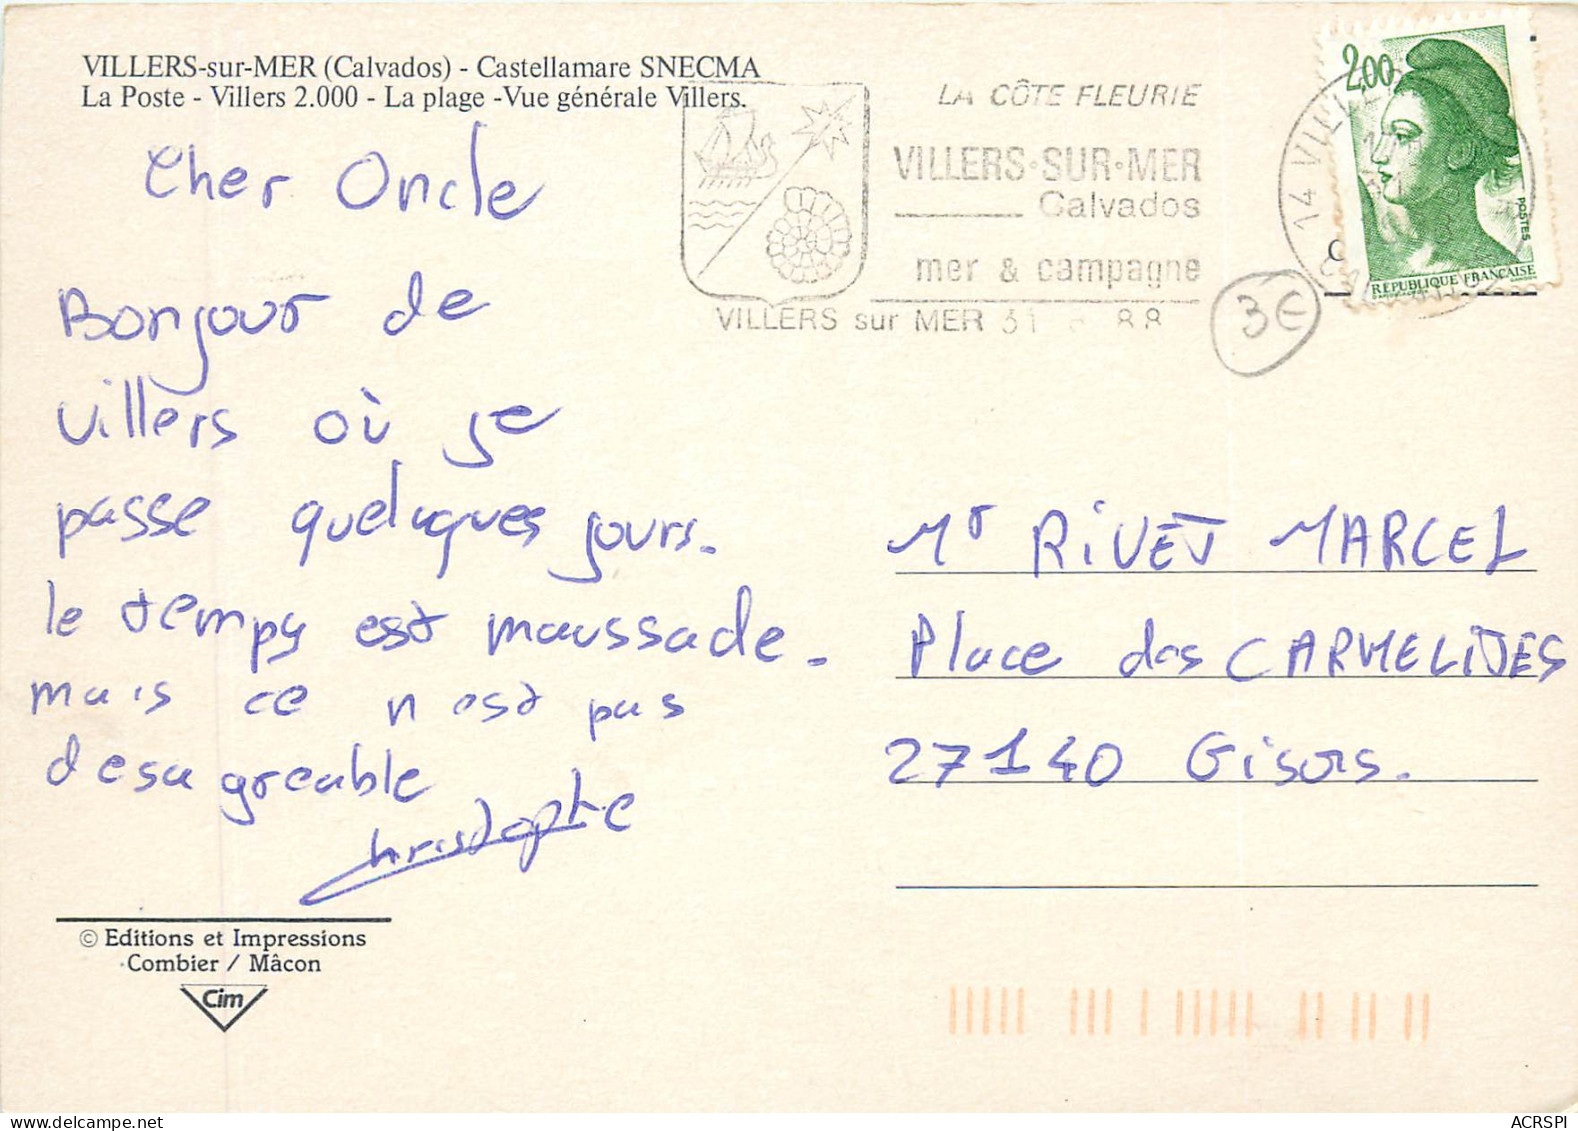 VILLERS-sur-MER (Calvados) - Castellamare SNECMA
La Poste - Villers 2.000 - La plage -Vue générale Villers.
LA CÔTE FLEURIE
VILLERS·SUR·MER
Calvados
mer & campagne
VILLERS sur MER 31 88
14 VILLE
2,00
POSTES
REPUBLIQUE FRANÇAISE
3€
Cher Oncle
Bonjour de
villers où je
passe quelques jours.
le temps est maussade.
mais ce n est pas
desagreable
christophe
Mr RiVET MARCEL
Place des CARMELITES
27140 Gisors.
© Editions et Impressions
Combier / Mâcon
Cim
ACRSPI